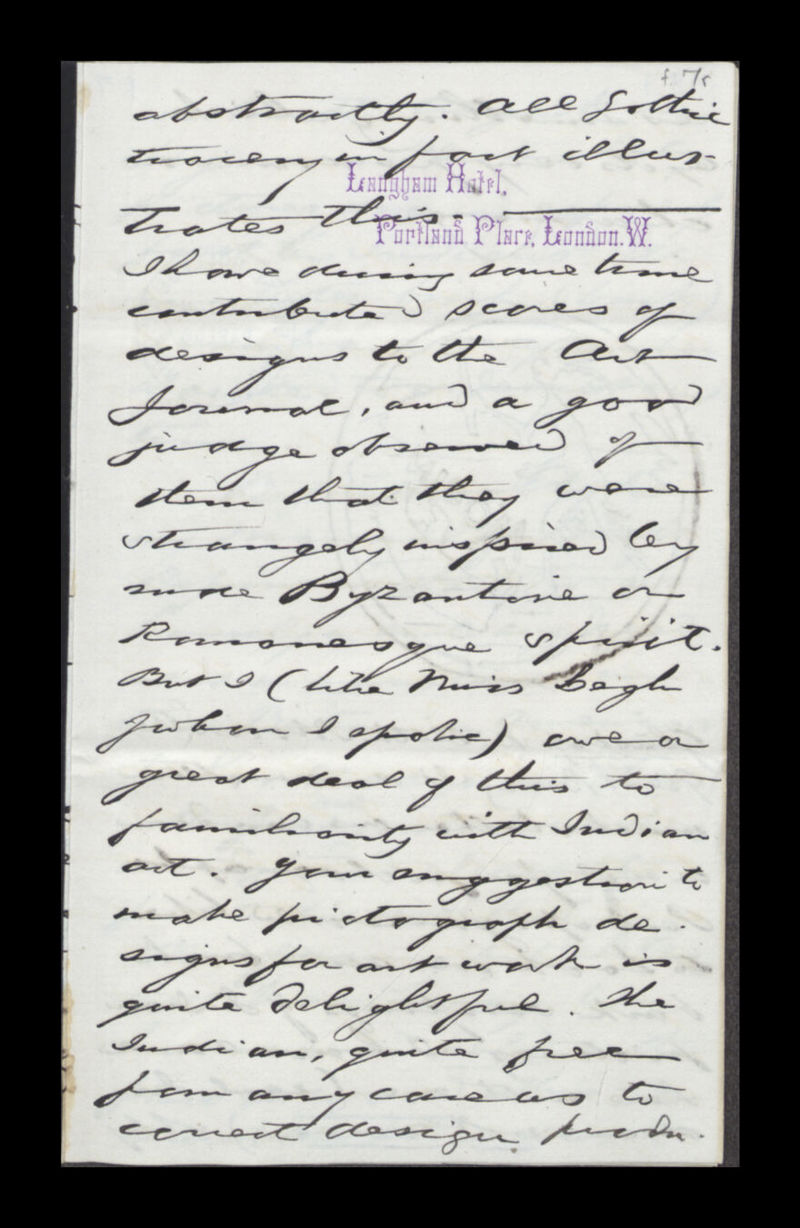 f. 7r
abstractly. All Gothic
tracery in fact illus-
Langham Hotel,
trates this. —
Portland Place, London. W.
I have during some time
contributed scores of
designs to the Art
Journal, and a good
judge observed of
them that they were
strangely inspired by
rude Byzantine or
Romanesque spirit.
But I (like Miss Leigh
of whom I spoke) owe a
great deal of this to
familiarity with Indian
art. Your suggestion to
make pictograph de-
signs for art work is
quite delightful. The
Indian, quite free
from any care as to
correct design, produ-